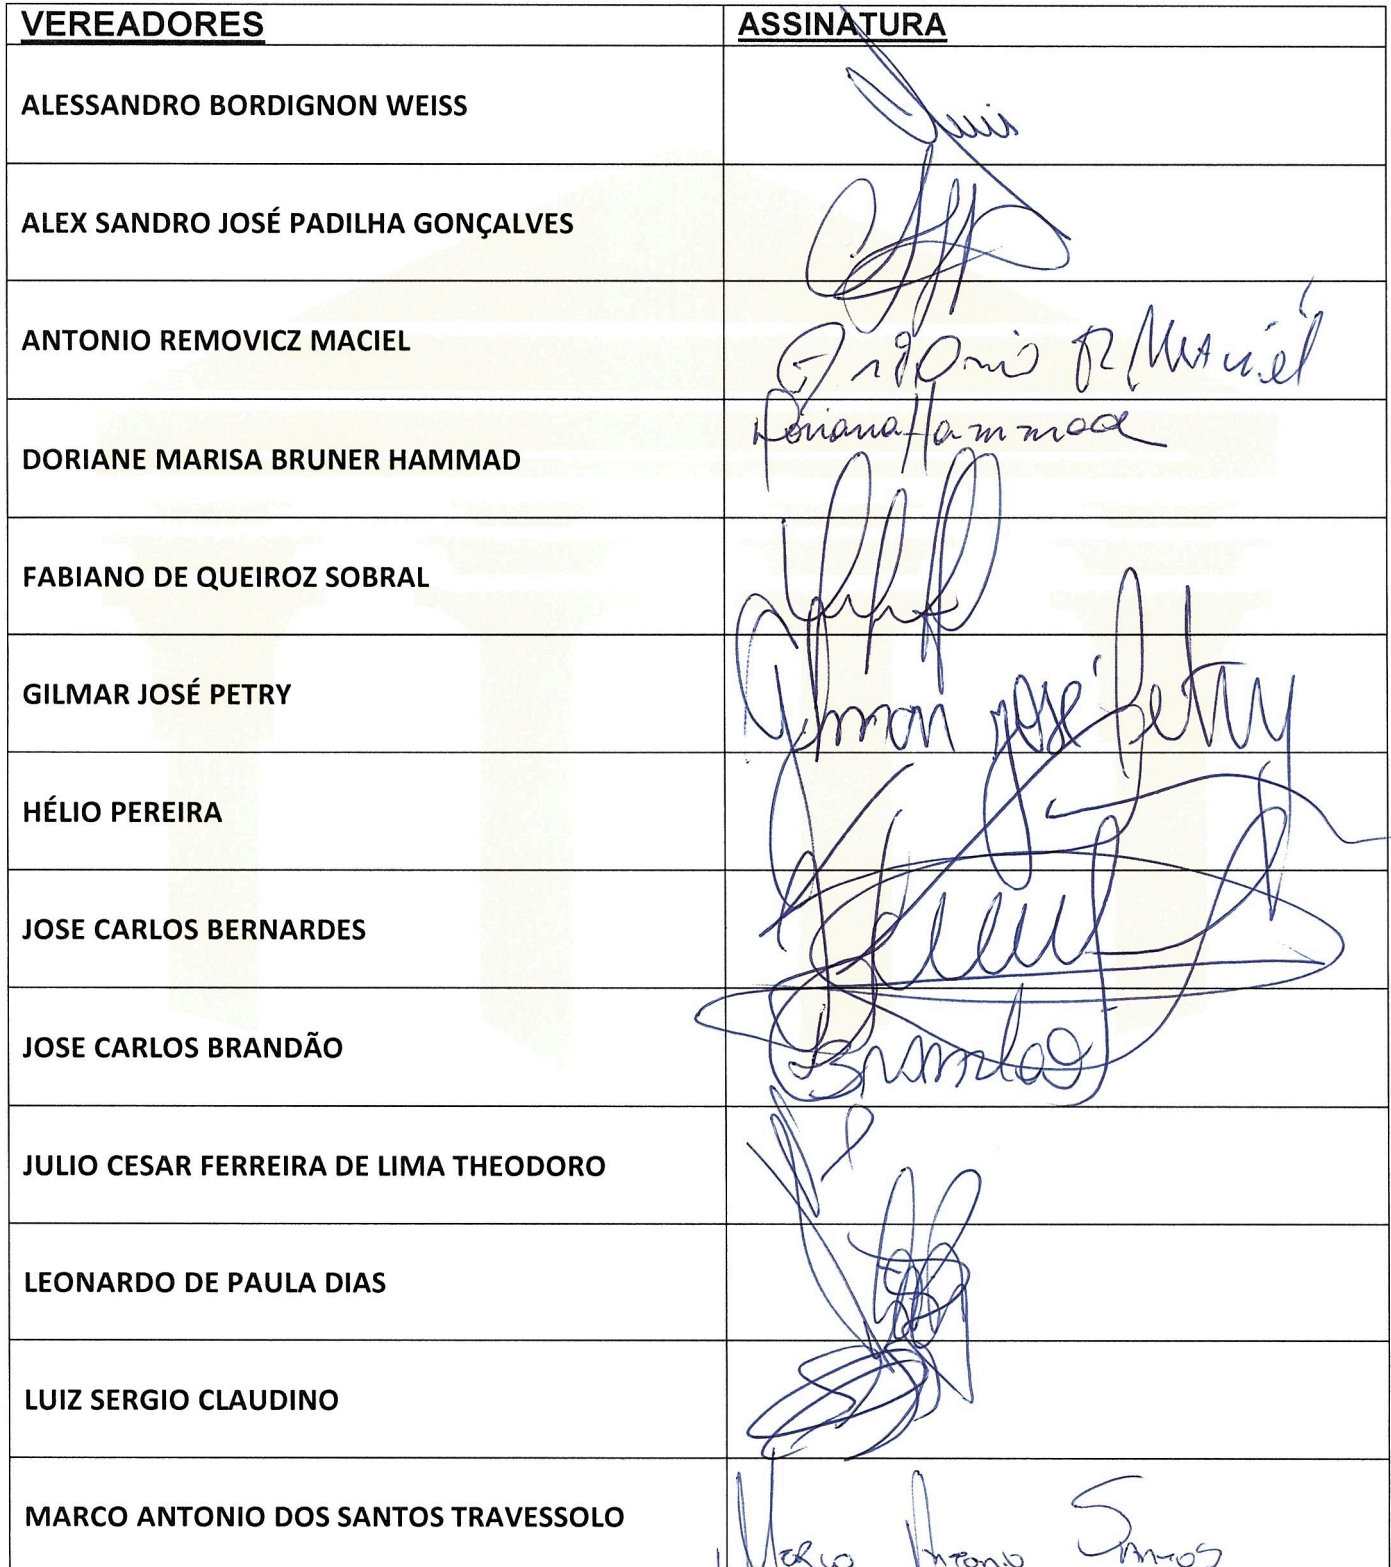 VEREADORES ASSINATURA
ALESSANDRO BORDIGNON WEISS
ALEX SANDRO JOSÉ PADILHA GONÇALVES
ANTONIO REMOVICZ MACIEL Antonio R Maciel
DORIANE MARISA BRUNER HAMMAD Hammad
FABIANO DE QUEIROZ SOBRAL
GILMAR JOSÉ PETRY Gilmar José Petry
HÉLIO PEREIRA
JOSE CARLOS BERNARDES
JOSE CARLOS BRANDÃO Brandão
JULIO CESAR FERREIRA DE LIMA THEODORO
LEONARDO DE PAULA DIAS
LUIZ SERGIO CLAUDINO
MARCO ANTONIO DOS SANTOS TRAVESSOLO Marco Antonio Santos